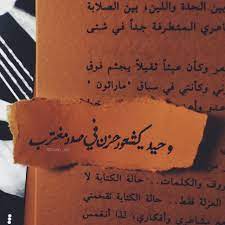 بين الحدة واللين، بين الصلابة
اعري المتطرفة جداً في شتى
مر وكأن عبئاً ثقيلاً يجثم على
وكأنني في سباق "ماراثون"
وحيد كشعور حزن في صدر مغترب
روف والكلمات.. حالة الكتابة
العزلة فقط.. حالة الكتابة تقحمني
مشاعري وأفكاري، لذا أنغمس